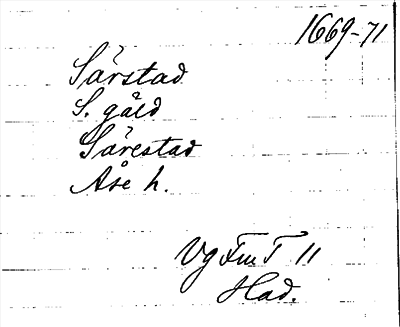 1669-71
Särstad
S. gäld
Särestad
Åse h.
Vg FmT 11
Had.